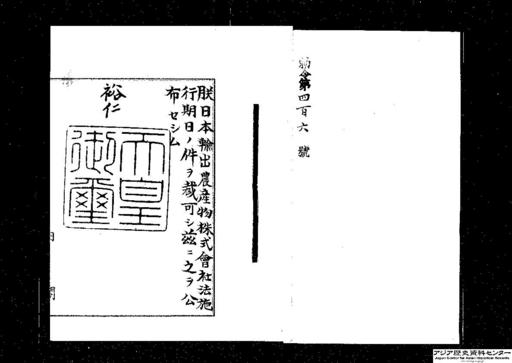 勅令第四百六號
朕日本輸出農產物株式會社法施
行期日ノ件ヲ裁可シ茲ニ之ヲ公
布セシム
裕仁
天皇
御璽
アジア歴史資料センター
Japan Center for Asian Historical Records